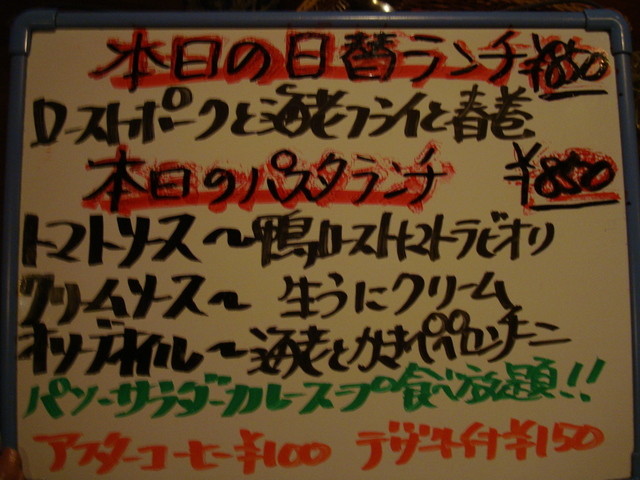 本日の日替ランチ ¥850
ローストポークと海老フライと春巻
本日のパスタランチ ¥850
トマトソース〜鴨ローストトマトラビオリ
クリームソース〜 生うにクリーム
オリーブオイル〜海老とかきペペロンチーニ
パン・サラダ・カレースープの食べ放題!!
アフターコーヒー¥100 デザート付¥150